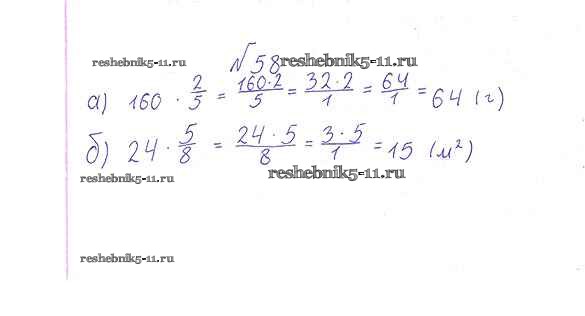 reshebnik5-11.ru № 58 reshebnik5-11.ru
а) 160 · 2/5 = 160·2/5 = 32·2/1 = 64/1 = 64 (г)
б) 24 · 5/8 = 24·5/8 = 3·5/1 = 15 (м²)
reshebnik5-11.ru reshebnik5-11.ru
reshebnik5-11.ru